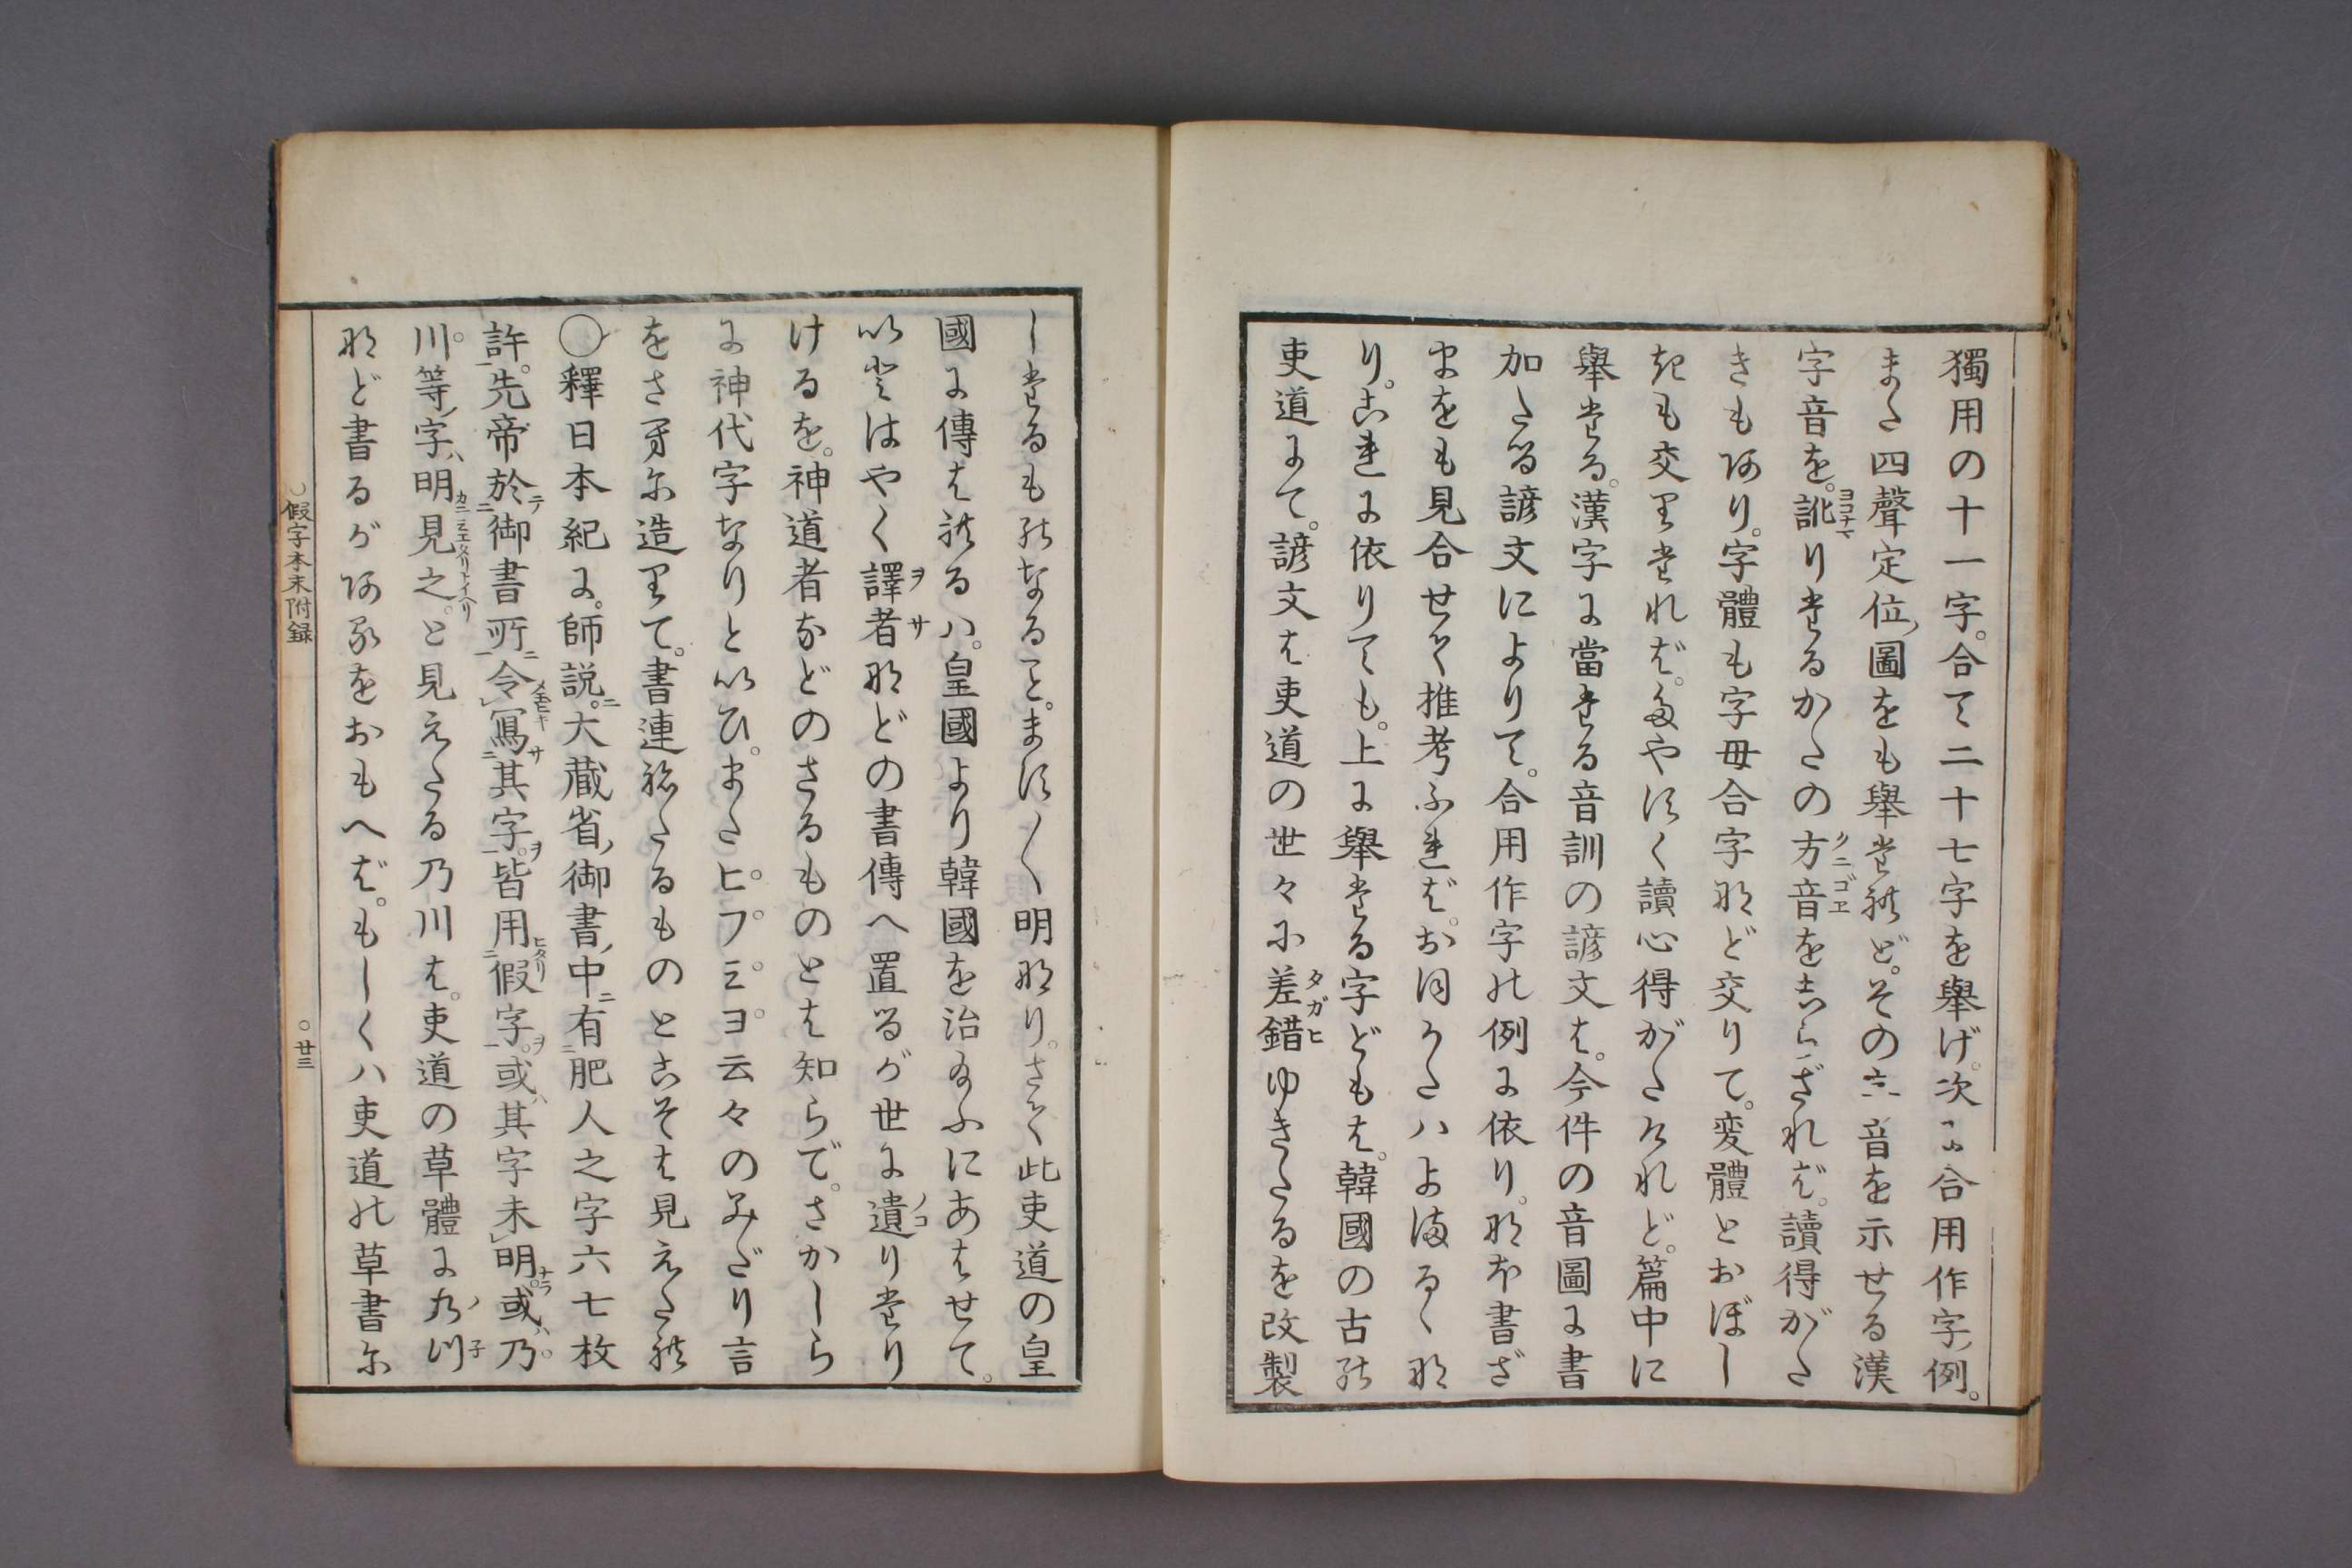 獨用の十一字。合て二十七字を舉げ。次に合用作字例。
また四聲定位圖をも舉たれど。その六音を示せる漢
字音を。訛りたるかたの方音をしらざれば。讀得がた
きもあり。字體も字母合字など交りて。変體とおぼし
きも交りたれば。たやすく讀心得がたけれど。篇中に
舉たる。漢字に當たる音訓の諺文は。今件の音圖に書
加たる諺文によりて。合用作字の例に依り。なほ書ざ
まをも見合せて推考ふれば。おほかたハよまるゝな
り。これに依りても。上に舉たる字どもは。韓國の古の
吏道にて。諺文は吏道の世々に差錯ゆきたるを改製
したるものなること。ますます明なり。さて此吏道の皇
國に傳はれるハ。皇國より韓國を治給ふにあはせて。
いとはやく譯者などの書傳へ置るが世に遺りたり
けるを。神道者などのさるものとは知らで。さかしら
に神代字なりといひ。またヒ゜フ゜ミ゜ヨ゜云々のみだり言
をさ牙に造りて。書連ねたるものとこそは見えたれ
○釋日本紀に。師説。大藏省御書中有肥人之字六七枚
許。先帝於御書所令寫其字。皆用假字。或其字未明。或乃
川等字明見之。と見えたる乃川は。吏道の草體に乃川
など書るがあるをおもへば。もしくハ吏道の草書に
假字本末附録
○廿三